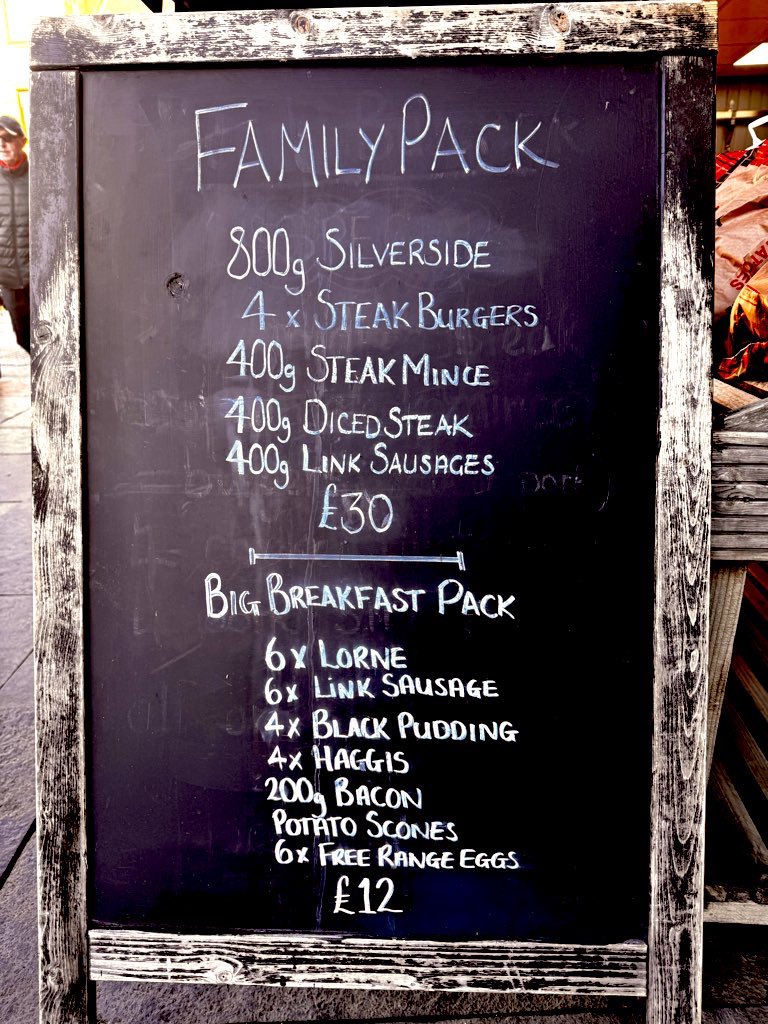 FAMILY PACK
800g SILVERSIDE
4 x STEAK BURGERS
400g STEAK MINCE
400g DICED STEAK
400g LINK SAUSAGES
£30
BIG BREAKFAST PACK
6x LORNE
6x LINK SAUSAGE
4x BLACK PUDDING
4x HAGGIS
200g BACON
POTATO SCONES
6x FREE RANGE EGGS
£12